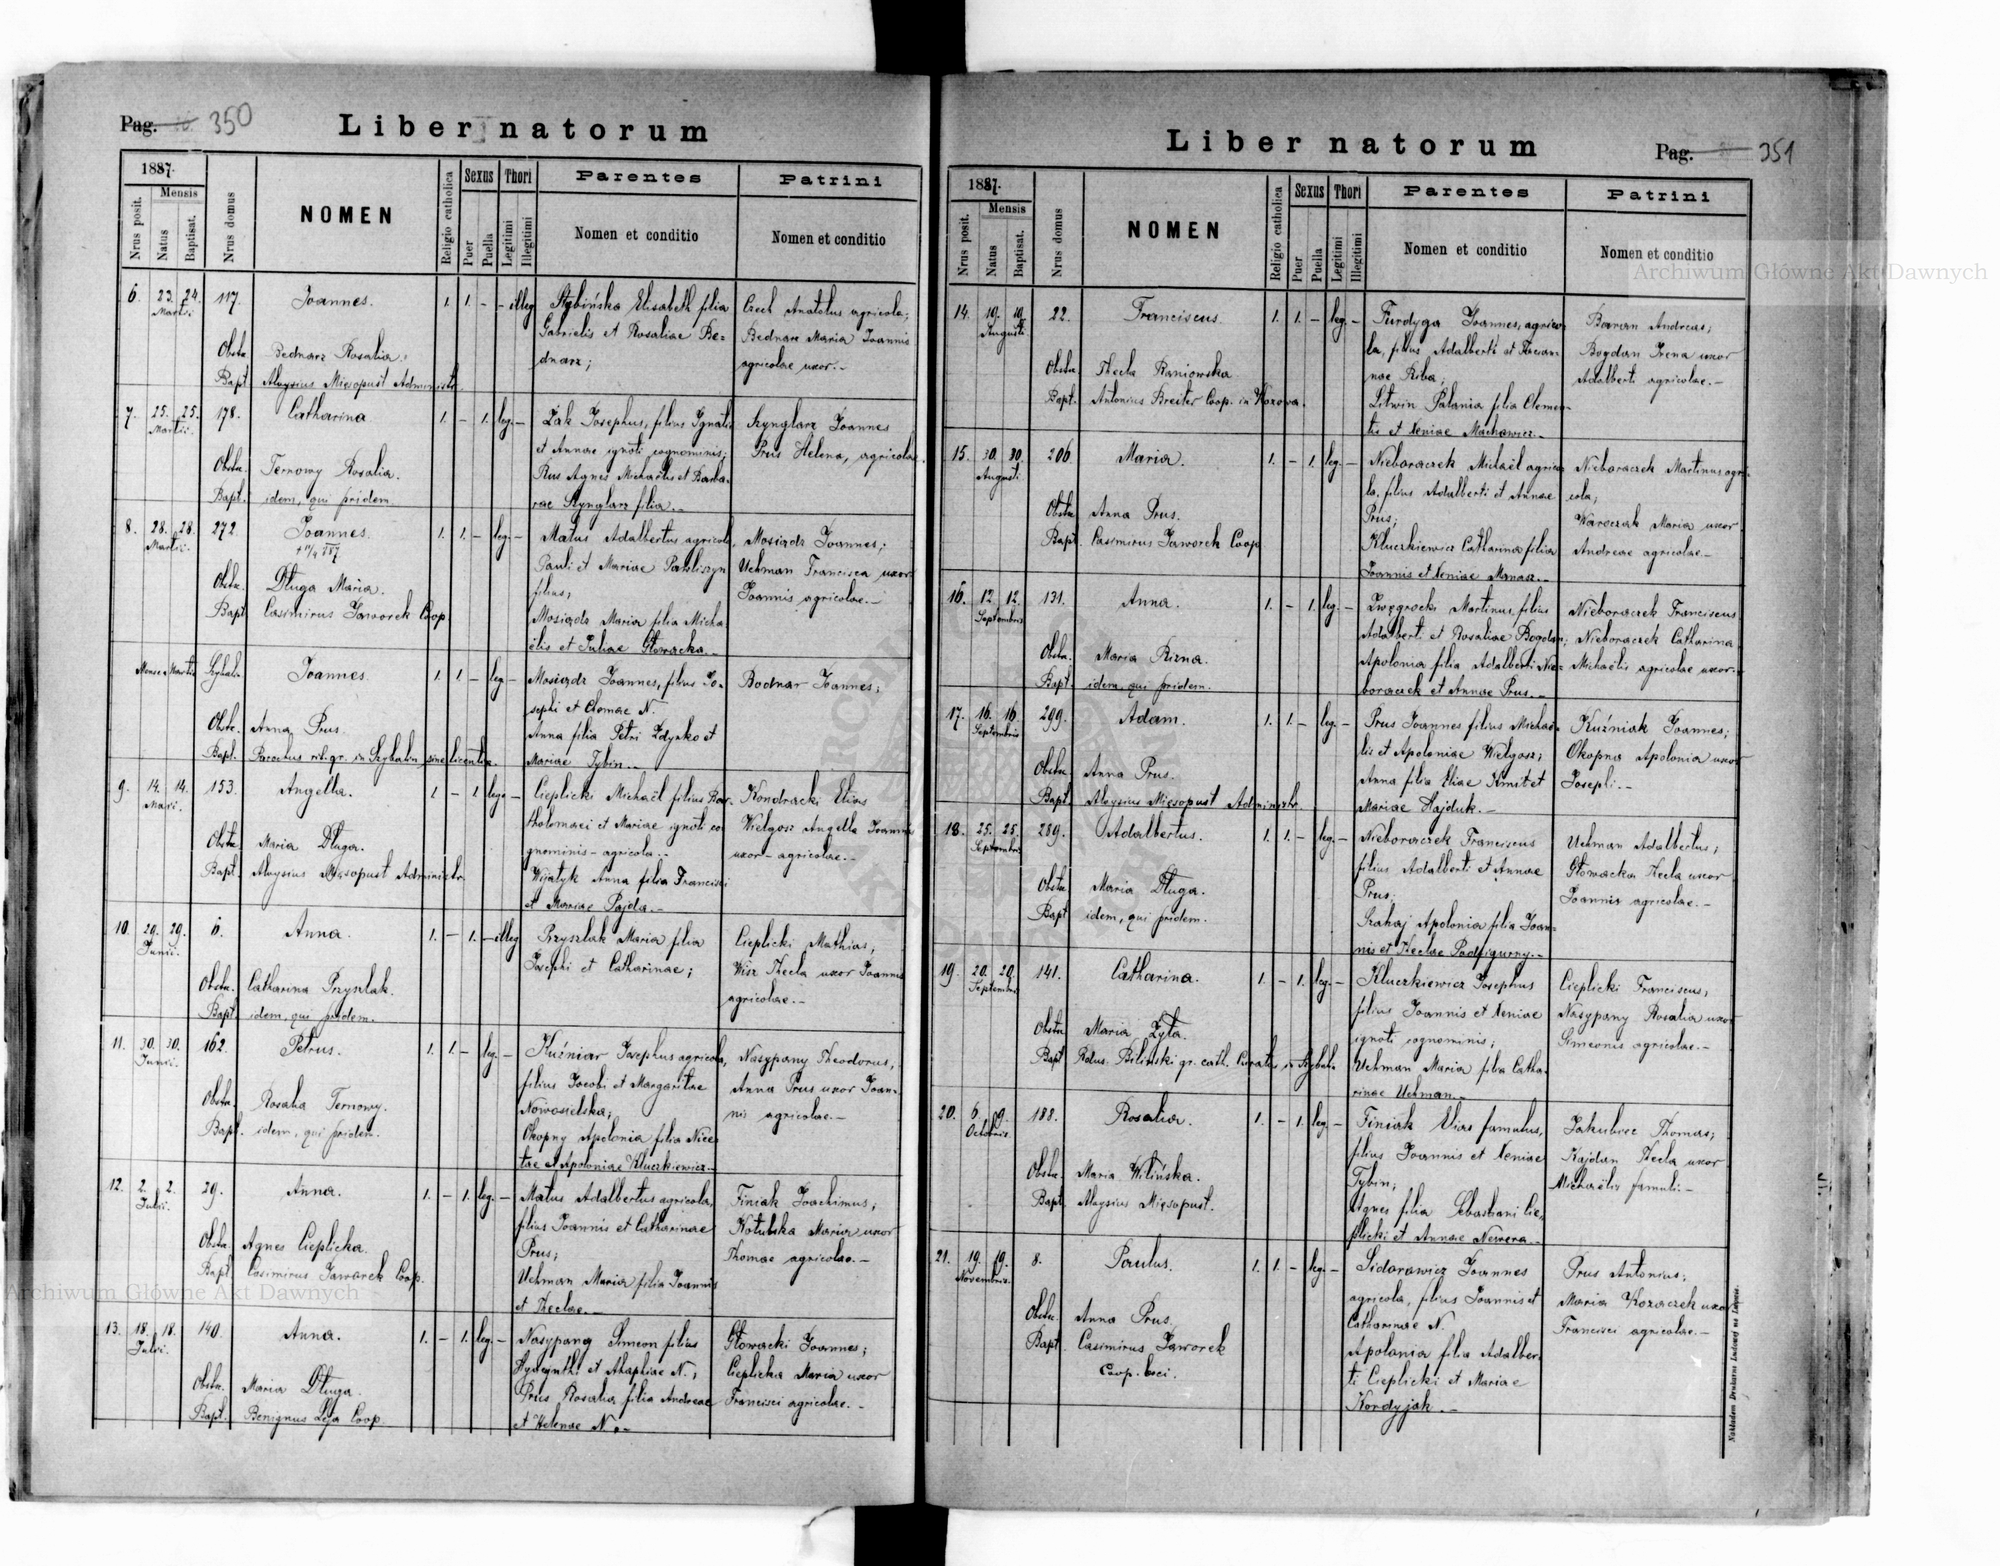 Pag. 350
Liber natorum
1887.
Mensis
Nrus posit.
Natus
Baptisat.
Nrus domus
NOMEN
Religio catholica
Sexus
Puer
Puella
Thori
Legitimi
Illegitimi
Parentes
Nomen et conditio
Patrini
Nomen et conditio
6. 23. 24. 117. Joannes. 1. 1. - - illeg
Martii
Obste. Bednarz Rosalia.
Bapt. Aloysius Mięsopust Administr.
Stybińska Elisabeth filia
Gabrielis et Rosaliae Be=
dnarz;
Czech Anatolus agricola;
Bednarz Maria Joannis
agricolae uxor.-
7. 25. 25. 178. Catharina 1. - 1. leg. -
Martii.
Obste. Ternowy Rosalia.
Bapt. idem, qui pridem.
Żak Josephus, filius Ignatii
et Annae ignoti cognominis;
Prus Agnes Michaelis et Barba-
rae Szynglarz filia.-
Szynglarz Joannes
Prus Helena, agricolae.
8. 28. 28. 272. Joannes. 1. 1. - leg. -
Martii.
Obste. Długa Maria.
Bapt. Casimirus Jaworek Coop.
Matus Adalbertus agricola,
Pauli et Mariae
filius;
Mosiądz Maria filia Micha
ëlis et Juliae Głowacka.-
Mosiądz Joannes;
Uchman Francisca uxor
Joannis agricolae.-
Mense Martio Joannes. 1. 1. - leg. -
Obste. Anna Prus.
Bapt. Parochus rit. gr. in Szybalin sine licentia.
Mosiądz Joannes, filius Jo-
sephi et N.
Anna filia Petri Zdynko et
Mariae Tybin.-
Bodnar Joannes;
9. 14. 14. 153. Angella. 1. - 1. leg. -
Maii.
Obste. Maria Długa.
Bapt. Aloysius Mięsopust Administr.
Cieplicki Michaël filius Bar-
tholomaei et Mariae ignoti co-
gnominis - agricola.-
Wijatyk Anna filia Francisci
et Mariae Pajda.-
Kondracki Elias
Wielgosz Angella Joannis
uxor - agricolae.-
10. 29. 29. 6. Anna. 1. - 1. - illeg
Junii.
Obste. Catharina Przyszlak.
Bapt. idem, qui pridem.
Przyszlak Maria filia
Josephi et Catharinae;
Cieplicki Mathias;
Wisz Thecla uxor Joannis
agricolae.-
11. 30. 30. 162. Petrus. 1. 1. - leg. -
Junii.
Obste. Rosalia Ternowy.
Bapt. idem, qui pridem.
Kuźniar Josephus agricola,
filius Jacobi et Margaritae
Nowosielska;
Okopny Apolonia filia Nice
tae et Apoloniae Kluczkiewicz.-
Nasypany Theodorus,
Anna Prus uxor Joan-
nis agricolae.-
12. 2. 2. 29. Anna. 1. - 1. leg. -
Julii.
Obste. Agnes Cieplicka.
Bapt. Casimirus Jaworek Coop.
Matus Adalbertus agricola,
filius Joannis et Catharinae
Prus;
Uchman Maria filia Joannis
et Theclae.-
Finiak Joachimus;
Kotulska Maria uxor
Thomae agricolae.-
13. 18. 18. 140. Anna. 1. - 1. leg. -
Julii.
Obste. Maria Długa.
Bapt. Benignus Leja Coop.
Nasypany Simeon filius
Hyacynthi et Ahaphiae N.;
Prus Rosalia filia Andreae
et Helenae N.-
Głowacki Joannes;
Cieplicka Maria uxor
Francisci agricolae.-
Liber natorum
Pag. 351
1887.
Mensis
Nrus posit.
Natus
Baptisat.
Nrus domus
NOMEN
Religio catholica
Sexus
Puer
Puella
Thori
Legitimi
Illegitimi
Parentes
Nomen et conditio
Patrini
Nomen et conditio
14. 19. 19. 22. Franciscus. 1. 1. - leg. -
Augusti.
Obste. Thecla Raniowska
Bapt. Antonius Breiter Coop. in Kozowa.
Furdyga Joannes, agrico
la, filius Adalberti et Joan-
nae Riba;
Litwin Palania filia Clemen-
tis et Xeniae Machawicz.-
Baran Andreas;
Bogdan Irena uxor
Adalberti agricolae.-
15. 30. 30. 206. Maria. 1. - 1. leg. -
Augusti.
Obste. Anna Prus.
Bapt. Casimirus Jaworek Coop
Nieboraczek Michaël agrico
la, filius Adalberti et Annae
Prus;
Kluczkiewicz Catharina filia
Joannis et Xeniae Manasz.-
Nieboraczek Martinus agri-
cola;
Waraczak Maria uxor
Andreae agricolae.-
16. 12. 12. 131. Anna. 1. - 1. leg. -
Septembris
Obste. Maria Rizna.
Bapt. idem, qui pridem.
Zwęgrocki Martinus, filius
Adalberti et Rosaliae Bogdan;
Apolonia filia Adalberti Nie=
boraczek et Annae Prus.-
Nieboraczek Franciscus
Nieboraczek Catharina
Michaëlis agricolae uxor.-
17. 16. 16. 299. Adam. 1. 1. - leg. -
Septembris
Obste. Anna Prus.
Bapt. Aloysius Mięsopust Administr.
Prus Joannes filius Michaë-
lis et Apoloniae Wielgosz;
Anna filia Eliae Kmit et
Mariae Hajduk.-
Kuźniak Joannes;
Okopna Apolonia uxor
Josephi.-
18. 25. 25. 289. Adalbertus. 1. 1. - leg. -
Septembris
Obste. Maria Długa.
Bapt. idem, qui pridem.
Nieboraczek Franciscus
filius Adalberti et Annae
Prus;
Szahaj Apolonia filia Joan-
nis et Theclae Podfigurny.-
Uchman Adalbertus;
Głowacka Thecla uxor
Joannis agricolae.-
19. 29. 29. 141. Catharina. 1. - 1. leg. -
Septembris
Obste. Maria Żyta.
Bapt. Rdus. Biliński gr. cath. Curatus in Szybalin
Kluczkiewicz Josephus
filius Joannis et Xeniae
ignoti cognominis;
Uchman Maria filia Catha-
rinae Uchman.-
Cieplicki Franciscus;
Nasypany Rosalia uxor
Simeonis agricolae.-
20. 6. 9. 188. Rosalia. 1. - 1. leg. -
Octobris.
Obste. Maria Wilińska.
Bapt. Aloysius Mięsopust.
Finiak Elias famulus,
filius Joannis et Xeniae
Tybin;
Agnes filia Sebastiani Cie-
plicki et Annae Newera.-
Jakubiec Thomas;
Kajdan Thecla uxor
Michaëlis famuli.-
21. 19. 19. 8. Paulus. 1. 1. - leg. -
Novembris.
Obste. Anna Prus.
Bapt. Casimirus Jaworek
Coop. loci.
Sidorowicz Joannes
agricola, filius Joannis et
Catharinae N.
Apolonia filia Adalber-
ti Cieplicki et Mariae
Kordyjak.-
Prus Antonius;
Maria Kozaczek uxor
Francisci agricolae.-
Nakładem Drukarni Ludowej we Lwowie.
Archiwum Główne Akt Dawnych
Archiwum Główne Akt Dawnych